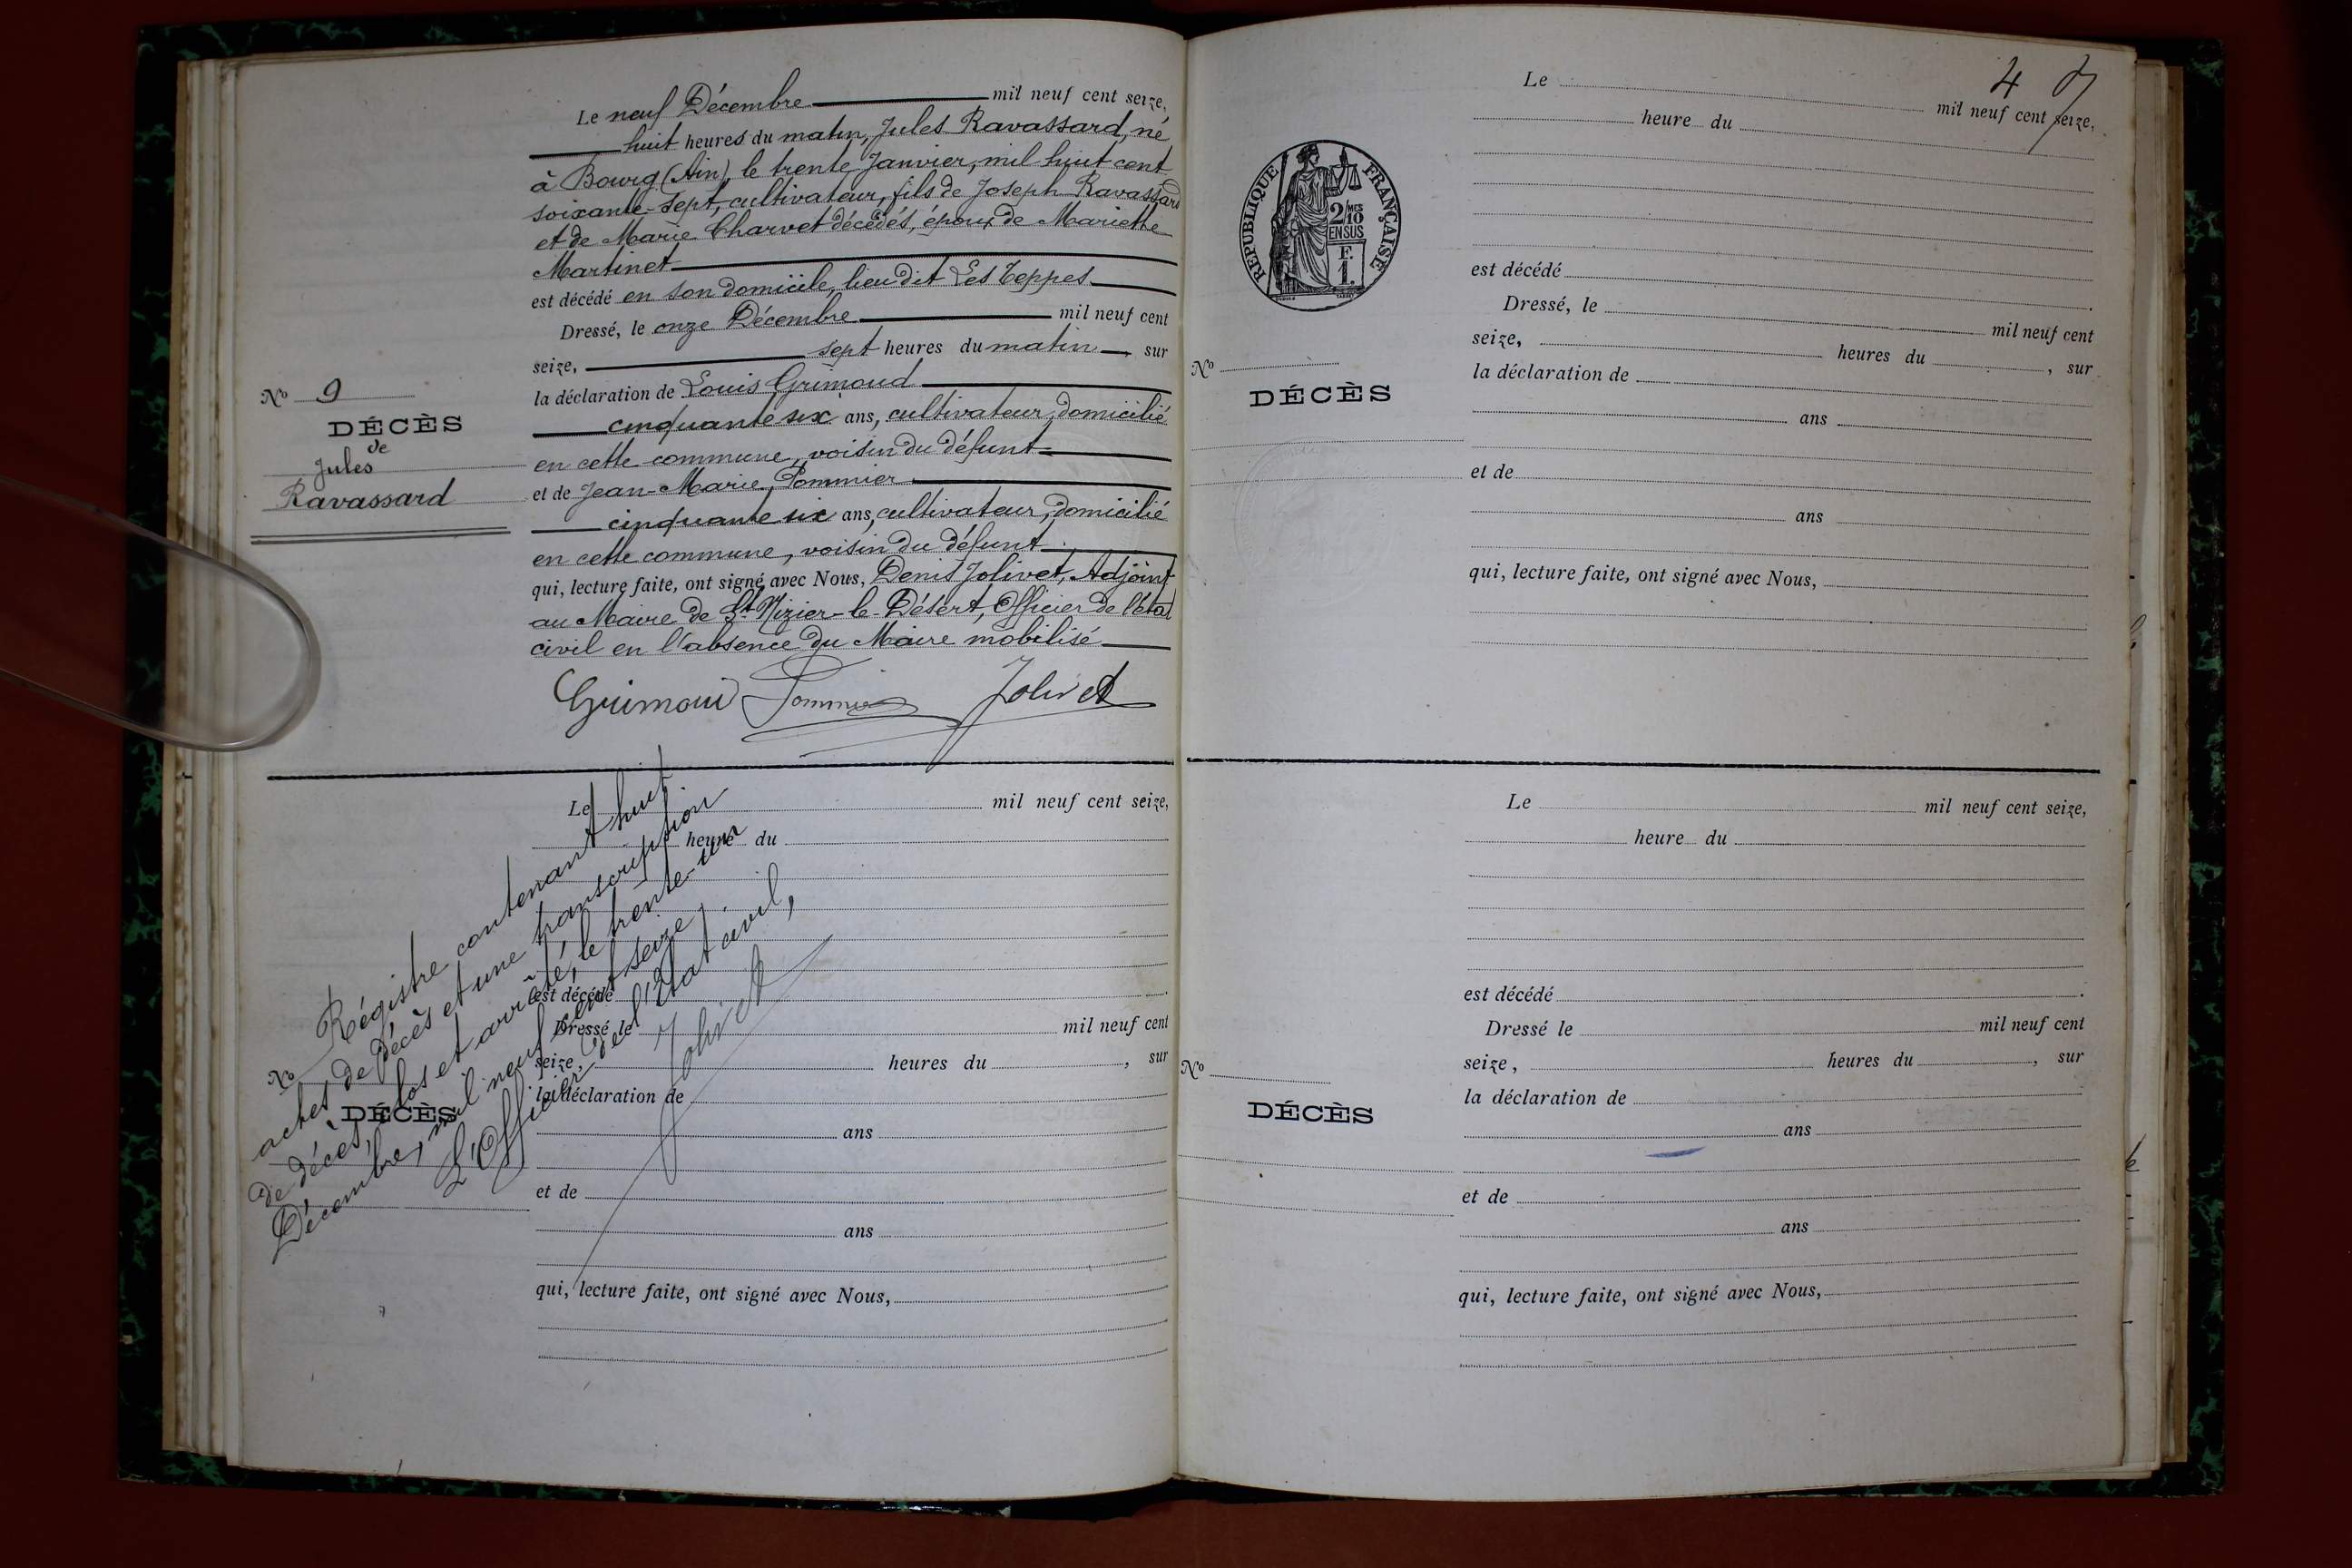 Le neuf Décembre mil neuf cent seize,
huit heures du matin, Jules Ravassard, né
à Bourg (Ain), le trente Janvier, mil huit cent
soixante-sept, cultivateur, fils de Joseph Ravassard
et de Marie Charvet décédés, époux de Mariette
Martinet
est décédé en son domicile, lieu dit Les Teppes
Dressé, le onze Décembre mil neuf cent
seize, sept heures du matin, sur
la déclaration de Louis Grimoud
cinquante six ans, cultivateur, domicilié
en cette commune, voisin du défunt
et de Jean-Marie, Pommier
cinquante six ans, cultivateur, domicilié
en cette commune, voisin du défunt
qui, lecture faite, ont signé avec Nous, Denis Jolivet, Adjoint
au Maire de St Nizier-le-Désert, Officier de l'état
civil en l'absence du Maire mobilisé
Grimoud Pommier Jolivet
No 9
DÉCÈS
de
Jules
Ravassard
Le mil neuf cent seize,
heure du
est décédé
Dressé le mil neuf cent
seize, heures du , sur
la déclaration de
ans
et de
ans
qui, lecture faite, ont signé avec Nous,
No
DÉCÈS
Régistre contenant huit
actes de décès et une transcription
de décès, clos et arrêté, le trente-un
Décembre, mil neuf cent seize.
L'Officier de l'état civil,
Jolivet
4
Le mil neuf cent seize,
heure du
est décédé
Dressé, le mil neuf cent
seize, heures du , sur
la déclaration de
ans
et de
ans
qui, lecture faite, ont signé avec Nous,
REPUBLIQUE FRANÇAISE
2/10 MES
EN SUS
F.
1.
No
DÉCÈS
Le mil neuf cent seize,
heure du
est décédé
Dressé le mil neuf cent
seize, heures du , sur
la déclaration de
ans
et de
ans
qui, lecture faite, ont signé avec Nous,
No
DÉCÈS